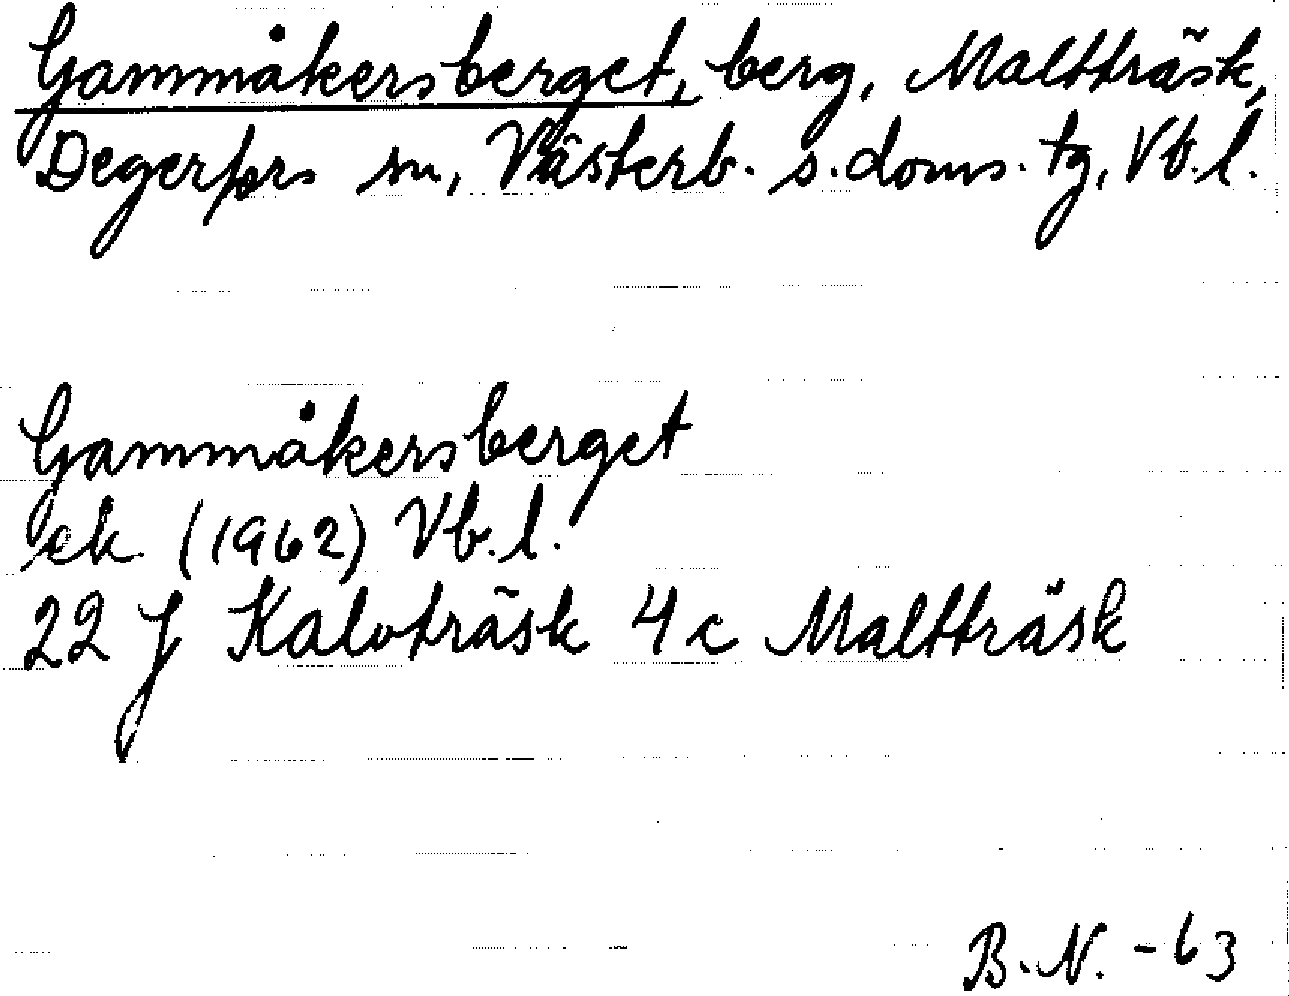 Gammåkersberget, berg, Maltträsk,
Degerfors sn, Västerb. s. doms. tg, Vb. l.
Gammåkersberget
ek. (1962) Vb. l.
22 J Kalvträsk 4 c Maltträsk
B. N. - 63